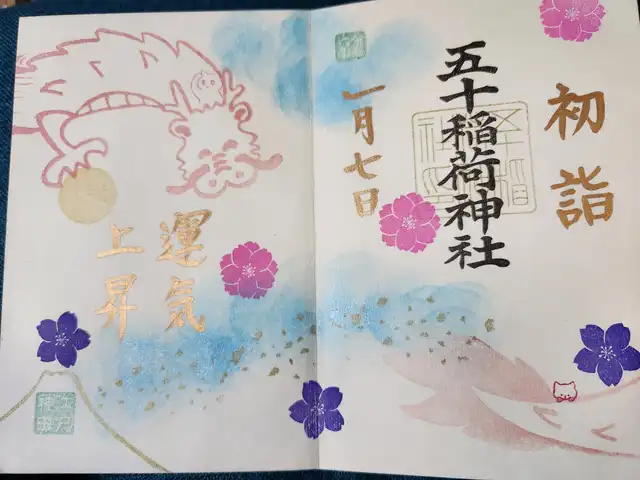 初詣
五十稲荷神社
一月七日
運気
上昇
江戸
神田